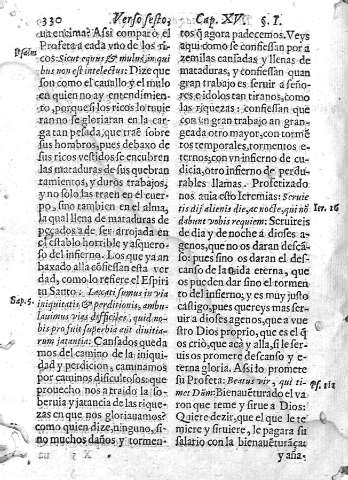 330 Verso sesto, Cap. XV. §. I.
ua encima? Assi comparò el
Profeta à cada vno de los ri-
Psalm.
cos: Sicut equus & mulus, in qui
bus non est intelectus: Dize que
son como el cauallo y el mulo
en quien no ay entendimien-
to, porque si los ricos lo truje-
ran no se gloriaran en la car-
ga tan pesada, que traẽ sobre
sus hombros, pues debaxo de
sus ricos vestidos se encubren
las mataduras de sus quebran
tamientos, y duros trabajos,
y no solo las traen en el cuer-
po, sino tambien en el alma,
la qual llena de mataduras de
pecados a de ser arrojada en
el establo horrible y asquero-
so del infierno. Los que ya an
baxado alla cõfiessan esta ver
dad, como lo refiere el Espiri
Sap. 5.
tu Santo: Laxati sumus in via
iniquitatis & perditionis, ambu-
lauimus vias difficiles, quid no-
bis profuit superbia aut diuitia-
rum jatantia: Cansados queda
mos del camino de la iniqui-
dad y perdicion, caminamos
por caminos dificultosos: que
prouecho nos a traido la so-
beruia y jatancia de las rique-
zas en que nos gloriauamos?
como quien dize, ninguno, si-
no muchos daños y tormen-
X
tos q̃ agora padecemos. Veys
aqui como se confiessan por a
zemilas cansadas y llenas de
mataduras, y confiessan quan
gran trabajo es seruir a seño-
res e idolos tan tiranos, como
las riquezas: confiessan que
con vn gran trabajo an gran-
geada otro mayor, con tormẽ
tos temporales, tormentos e-
ternos; con vn infierno de cu-
dicia, otro infierno de perdu-
rables llamas. Profetizado
nos auia esto Ieremias: Seruie
Ier. 16
tis dijs alienis die, ac nocte, qui nõ
dabunt vobis requiem: Seruireis
de dia y de noche à dioses a-
genos, que no os daran descã-
so: pues sino os daran el des-
canso de la vida eterna, que
os pueden dar sino el tormen
to del infierno; y es muy justo
castigo, pues quereys mas ser-
uir a dioses agenos, que a vue
stro Dios proprio, que es el q̃
os criò, que acà y alla, si le ser-
uis os promete descanso y e-
terna gloria. Assi lo promete
su Profeta: Beatus vir, qui ti-
Ps. 111
met Dñm: Bienauẽturado el va
ron que teme y sirue a Dios:
Quiere dezir, que el que le te
miere y siruiere, le pagara su
salario con la bienauẽturãça:
y aña-